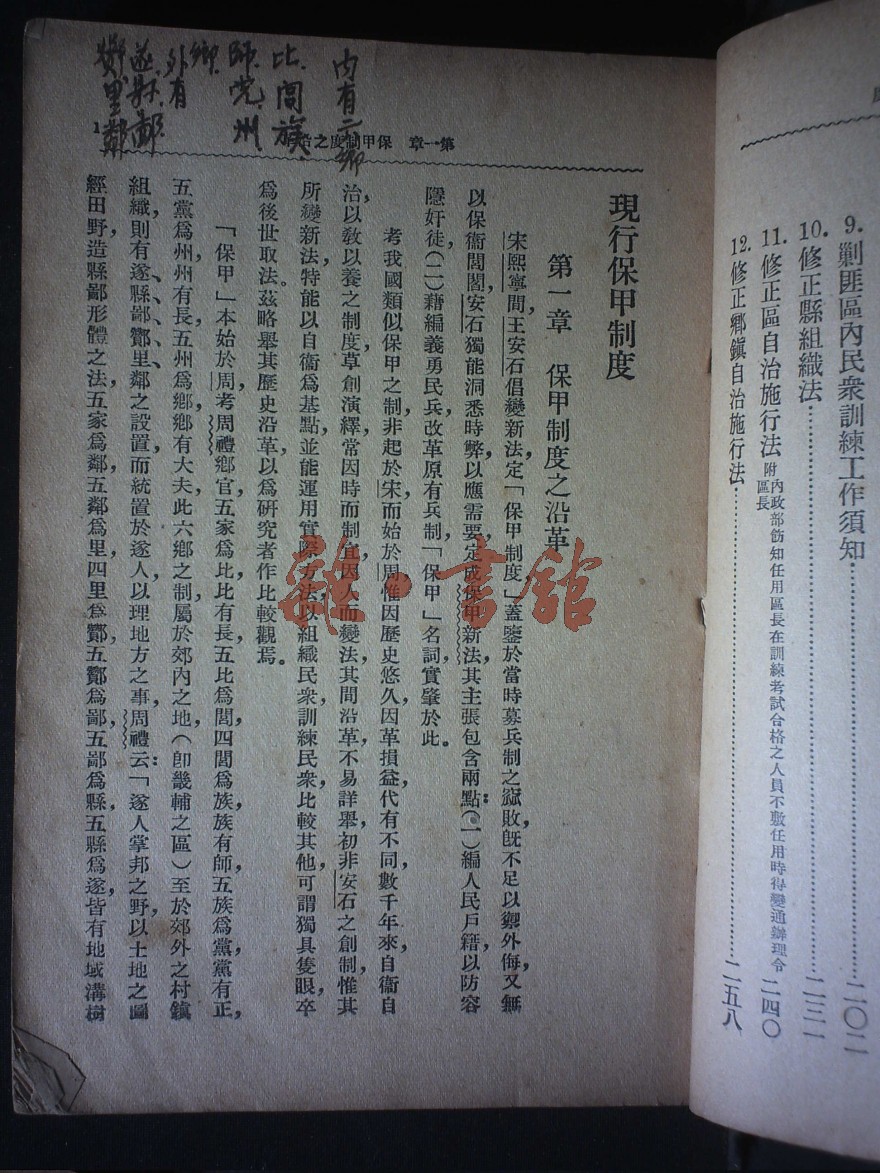 9. 剿匪區內民衆訓練工作須知 二〇二
10. 修正縣組織法 二三一
11. 修正區自治施行法 附內政部飭知任用區長在訓練考試合格之人員不敷任用時得變通辦理令 二四〇
區長
12. 修正鄉鎭自治施行法 二五八
內有六鄉
比.閭族.
師.党.州
鄉.
外有
遂.縣.鄙.
酇.里.鄰
第一章 保甲制度之沿
1
現行保甲制度
第一章 保甲制度之沿革
宋熙寧間，王安石倡變新法，定「保甲制度，」蓋鑒於當時募兵制之窳敗，旣不足以禦外侮，又無
以保衞閭閻，安石獨能洞悉時弊，以應需要，定成保甲新法，其主張包含兩點：（一）編人民戶籍，以防容
隱奸徒，（二）藉編義勇民兵，改革原有兵制，「保甲」名詞，實肇於此。
考我國類似保甲之制，非起於宋，而始於周，惟因歷史悠久，因革損益，代有不同，數千年來，自衞自
治，以敎以養之制度，草創演繹，常因時而制宜，因人而變法，其間沿革，不易詳舉，初非安石之創制，惟其
所變新法，特能以自衞爲基點，並能運用實際方法，以組織民衆，訓練民衆，比較其他，可謂獨具隻眼，卒
爲後世取法。茲略舉其歷史沿革，以爲研究者作比較觀焉。
「保甲」本始於周，考周禮鄉官，五家爲比，比有長，五比爲閭，四閭爲族，族有師，五族爲黨，黨有正，
五黨爲州，州有長，五州爲鄉，鄉有大夫，此六鄉之制，屬於郊內之地，（卽畿輔之區）至於郊外之村鎭
組織，則有遂、縣、鄙、酇、里、鄰之設置，而統置於遂人，以理地方之事，周禮云：「遂人掌邦之野，以土地之圖
經田野，造縣鄙形體之法，五家爲鄰，五鄰爲里，四里爲酇，五酇爲鄙，五鄙爲縣，五縣爲遂，皆有地域溝樹
雜·書館